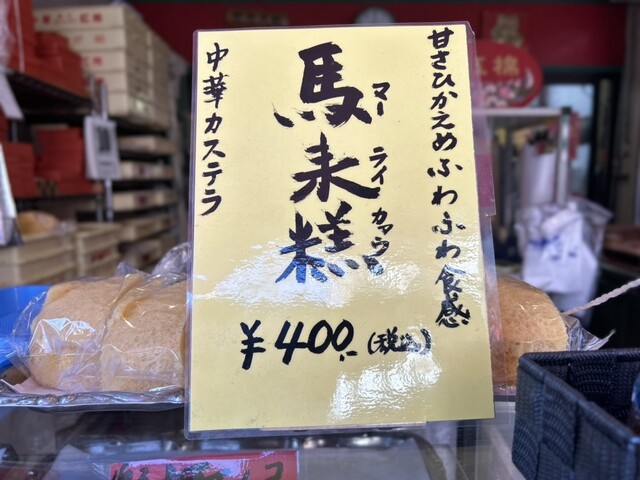 甘さひかえめふわふわ食感
馬来糕
マーライカオ
中華カステラ
¥400.-(税込)